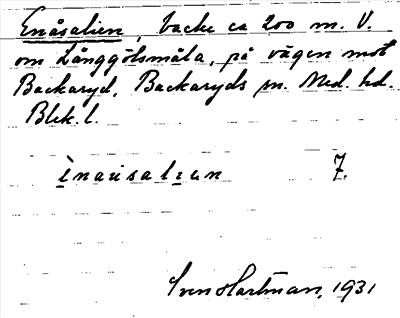 Enåsalien, backe ca 200 m. V.
om Långgölsmåla, på vägen mot
Backaryd, Backaryds sn. Med. hd.
Blek. l.
7.
Sven Hartman, 1931